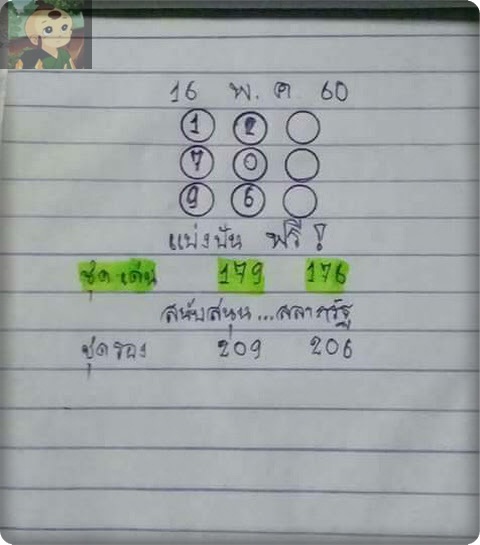 16 พ.ค 60
1 2
7 0
9 6
แบ่งปัน ฟรี !
ชุดเด่น 179 176
สนับสนุน...สลากรัฐ
ชุดรอง 209 206